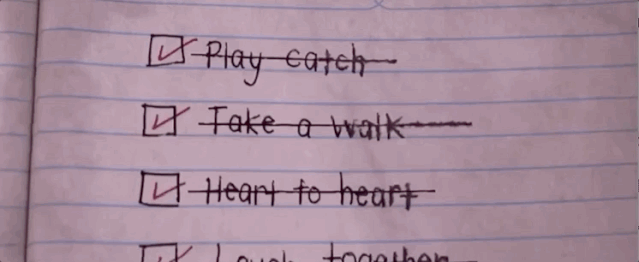 Play catch
Take a walk
Heart to heart
together